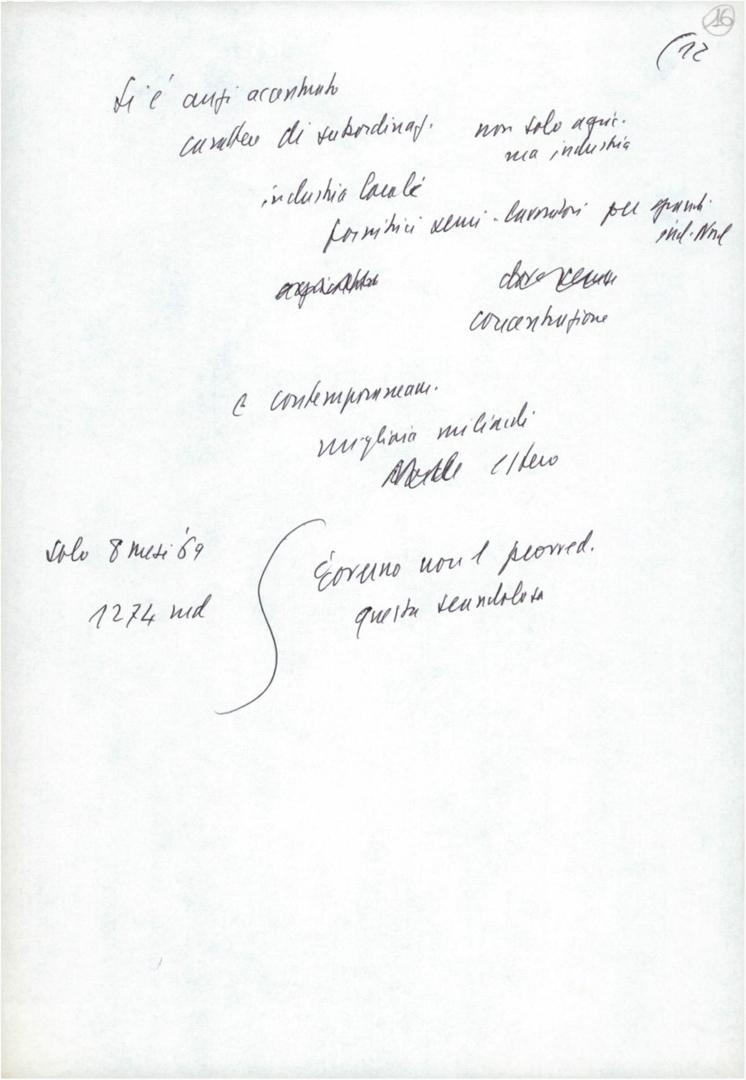 16
(12
Si è anzi accentuato
carattere di subordinaz.
non solo agric.
ma industria
industria locale
fornitrici semi-lavorati per grandi
ind. Nord
concentrazione
e contemporaneam.
migliaia miliardi
estero
solo 8 mesi '69
1274 md
Governo non l provved.
questa scandalosa